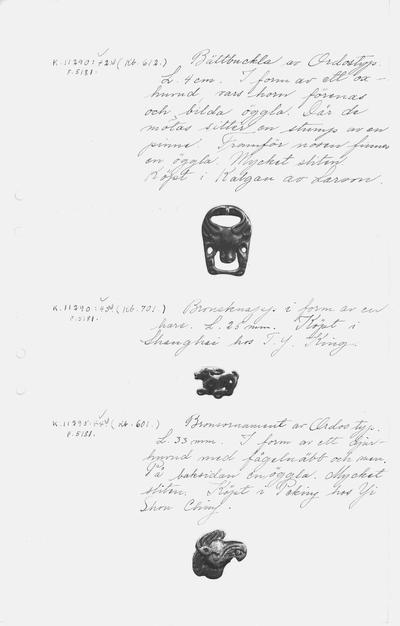 K.11290:724 (Kb.612.) Bältbuckla av Ordostyp.
P.5181. L. 4 cm. I form av ett ox-
huvud, vars horn förenas
och bilda öggla. Där de
mötas sitter en stump av en
pinne. Framför nosen finnes
en öggla. Mycket sliten.
Köpt i Kalgan av Larson.
K.11290: (Kb.701.) Bronsknapp i form av en
P.5181. hare. L. 25 mm. Köpt i
Shanghai hos T.Y. King.
(Kb.601.) Bronsornament av Ordostyp.
P.5181. L. 33 mm. I form av ett djur-
huvud med fågelnäbb och
På baksidan en öggla. Mycket
sliten. Köpt i Peking hos Yi
Shou Ching.